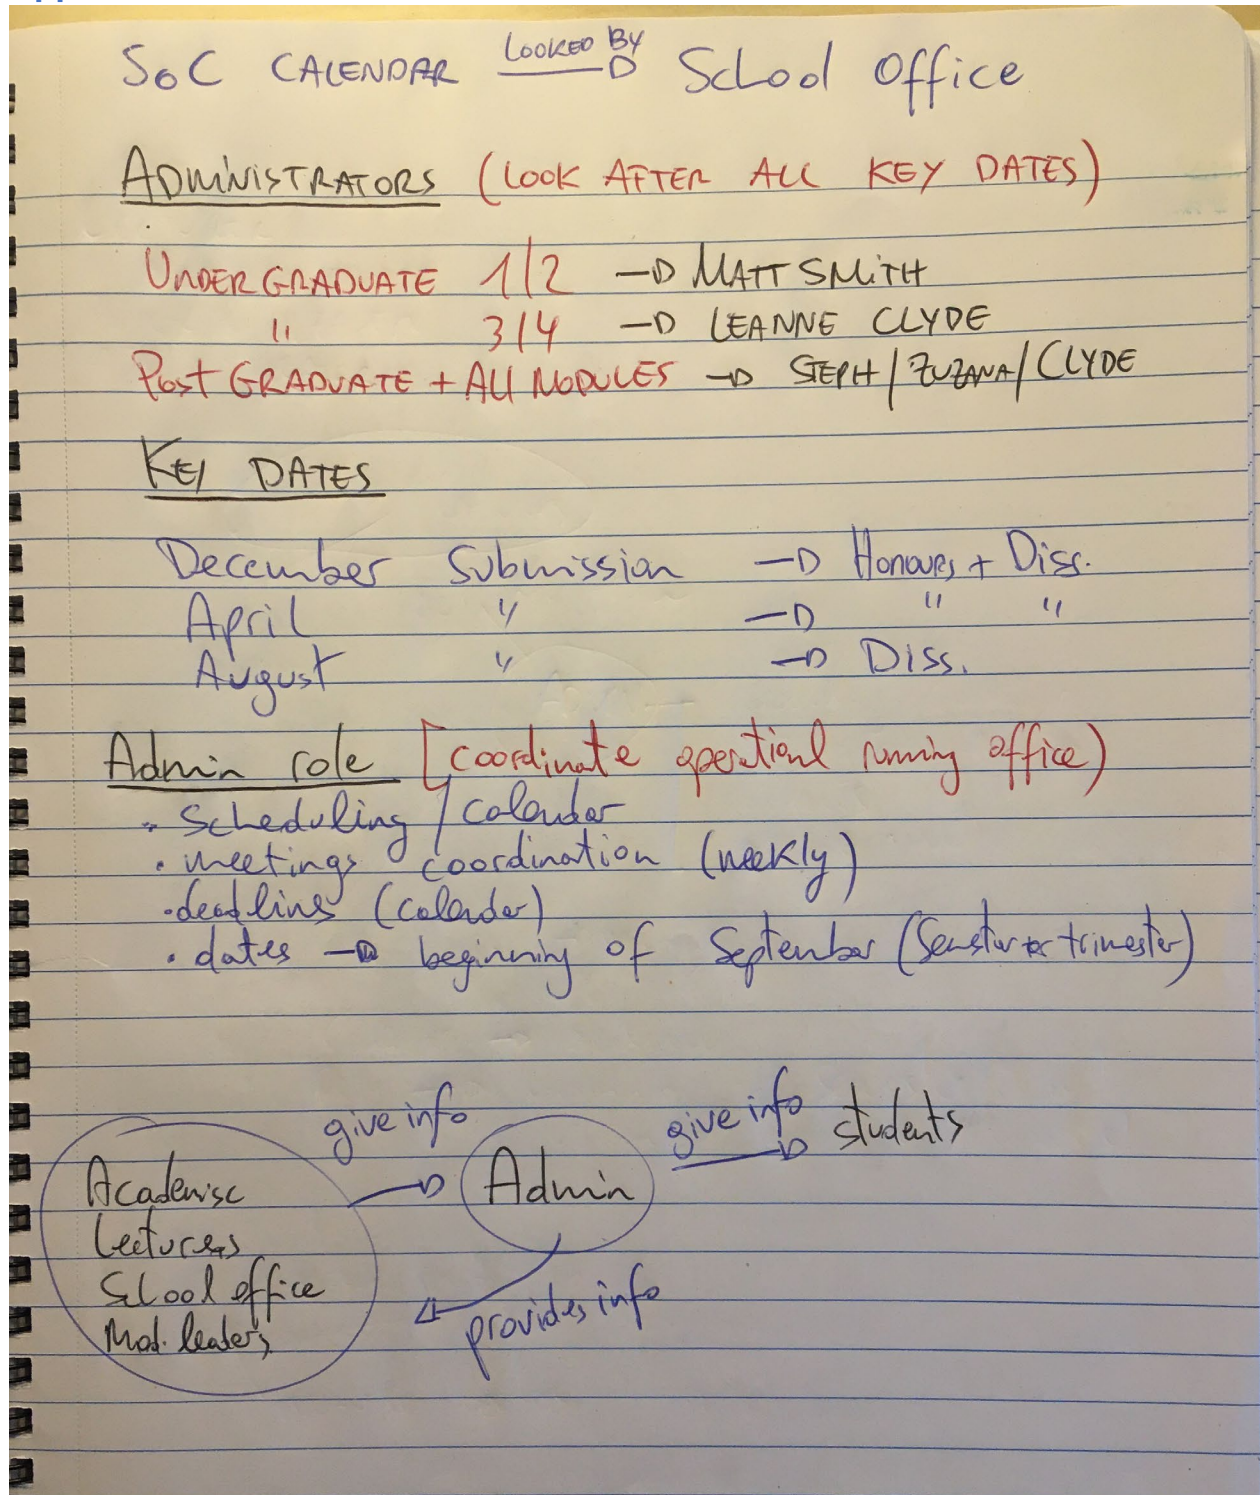 SoC CALENDAR LOOKED BY School Office
ADMINISTRATORS (LOOK AFTER ALL KEY DATES)
UNDERGRADUATE 1/2 MATT SMITH
" 3/4 LEANNE CLYDE
Post GRADUATE + All MODULES STEPH/ZUZANA/CLYDE
KEY DATES
December Submission Honours + Diss.
April " " "
August " Diss.
Admin role [coordinate operational running office)
• Scheduling / calendar
• meetings coordination (weekly)
• deadlines (calendar)
• dates beginning of September (Semester or trimester)
give info give info students
Academisc Admin
Lecturers
School office
Mod. leaders
provides info